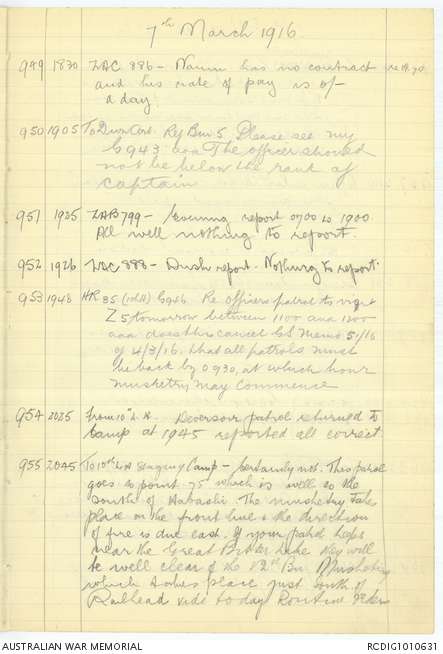 7th March 1916
949 1830 ZAC 886 - has no contract
and his rate of pay is 6/-
a day.
950 1905 To Divn Art. Ref Bm 5. Please see my
G943 aaa The officer should
not be below the rank of
captain
951 1925 ZAB 799 - Evening report 0700 to 1900
All well nothing to report.
952 1926 ZBC 888 - Dusk report. Nothing to report.
953 1948 HR 85 G946. Re officers patrol to visit
Z5 tomorrow between 1100 and 1200
aaa does this cancel GS Memo 5/16
of 4/3/16. that all patrols must
be back by 0930, at which hour
musketry may commence
954 2025 From 10th L.H. Deversoir patrol returned to
Camp at 1945 reported all correct.
955 2045 To 10th LH Staging Camp - Certainly not. This patrol
goes to point 75 which is well to the
South of Habashi. The musketry takes
place on the front line & the direction
of fire is due east. If your patrol keeps
near the Great Bitter Lake they will
be well clear of the Bn Musketry
which takes place just south of
Railhead vide to day Routine Order
AUSTRALIAN WAR MEMORIAL
RCDIG1010631